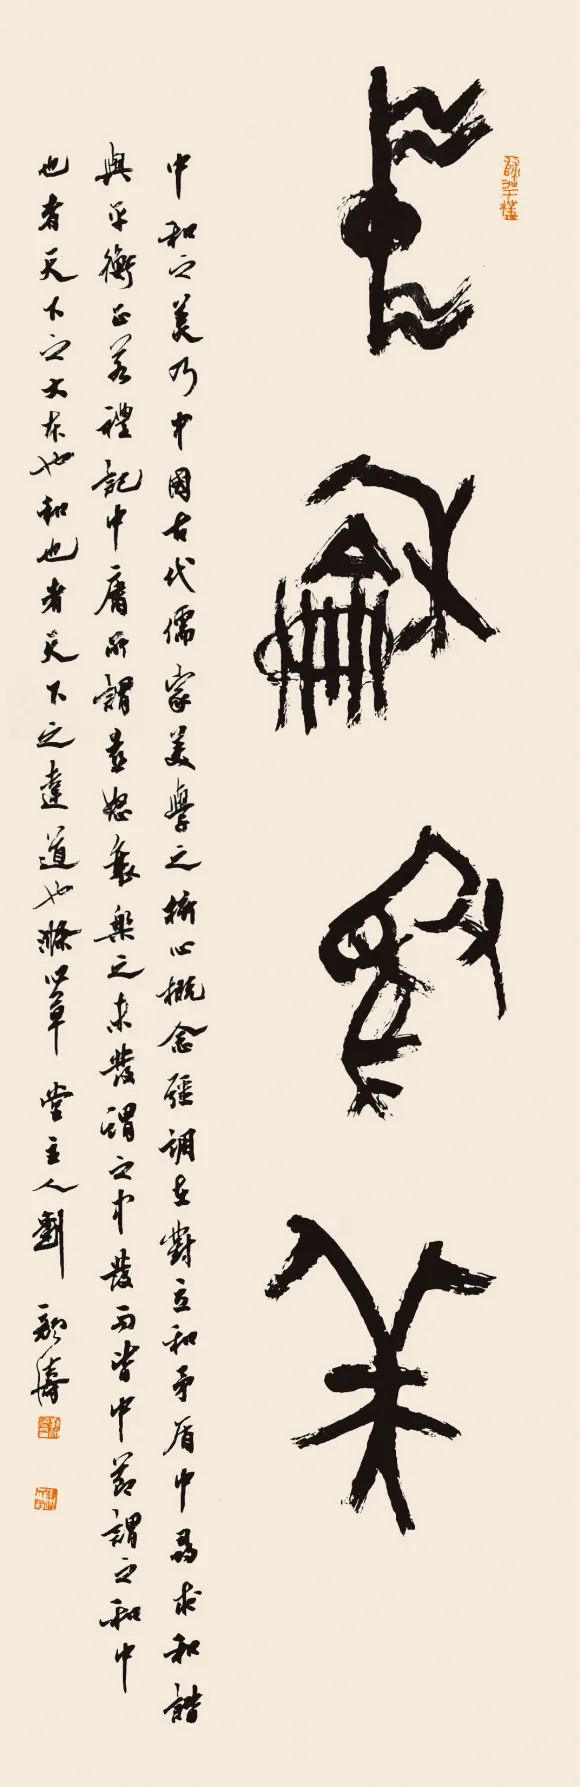 中龢爲美
中和之美乃中國古代儒家美學之核心概念彊調在對立和矛盾中尋求和諧
與平衡正若禮記中庸所謂喜怒哀樂之未發謂之中發而皆中節謂之和中
也者天下之大本也和也者天下之達道也 草堂主人劉顏濤